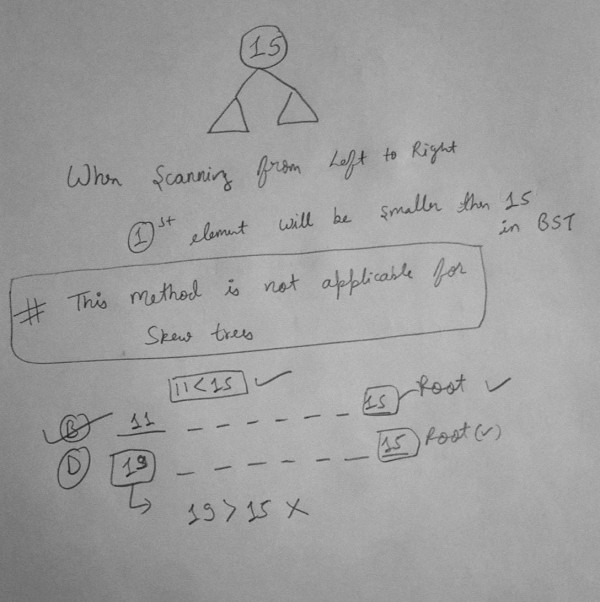 15
When Scanning from Left to Right
1st element will be smaller then 15
in BST
# This method is not applicable for
Skew trees
11<15 ✓
B 11 - - - - - - 15 Root ✓
D 19 - - - - - - - 15 Root (✓)
↳ 19 > 15 X